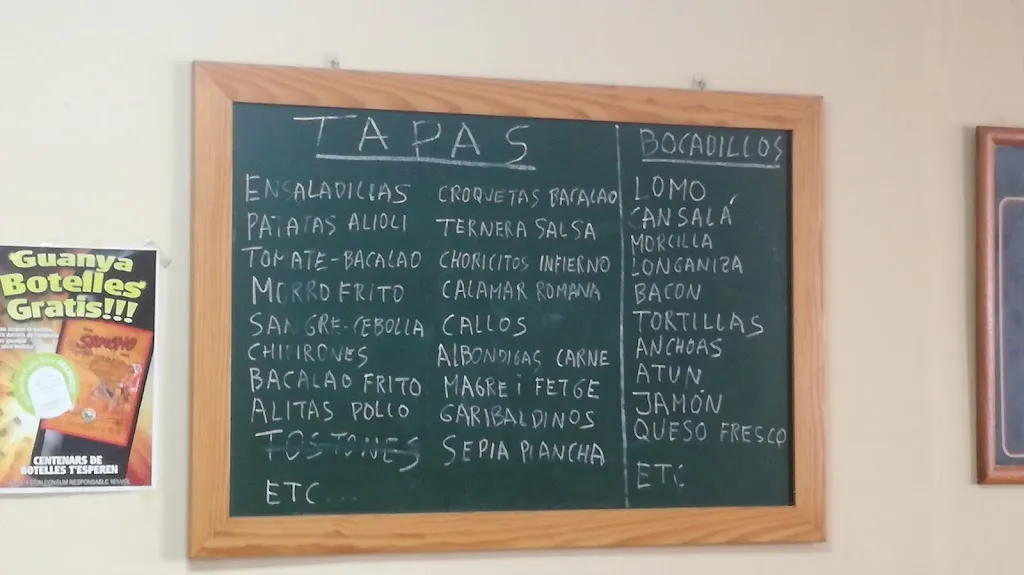 TAPAS
ENSALADILLAS
PATATAS ALIOLI
TOMATE-BACALAO
MORRO FRITO
SANGRE-CEBOLLA
CHIPIRONES
BACALAO FRITO
ALITAS POLLO
TOSTONES
ETC...
CROQUETAS BACALAO
TERNERA SALSA
CHORICITOS INFIERNO
CALAMAR ROMANA
CALLOS
ALBONDIGAS CARNE
MAGRE i FETGE
GARIBALDINOS
SEPIA PLANCHA
BOCADILLOS
LOMO
CANSALÁ
MORCILLA
LONGANIZA
BACON
TORTILLAS
ANCHOAS
ATUN
JAMÓN
QUESO FRESCO
ETC
Guanya
Botelles
Gratis!!!
CENTENARS DE
BOTELLES T'ESPEREN